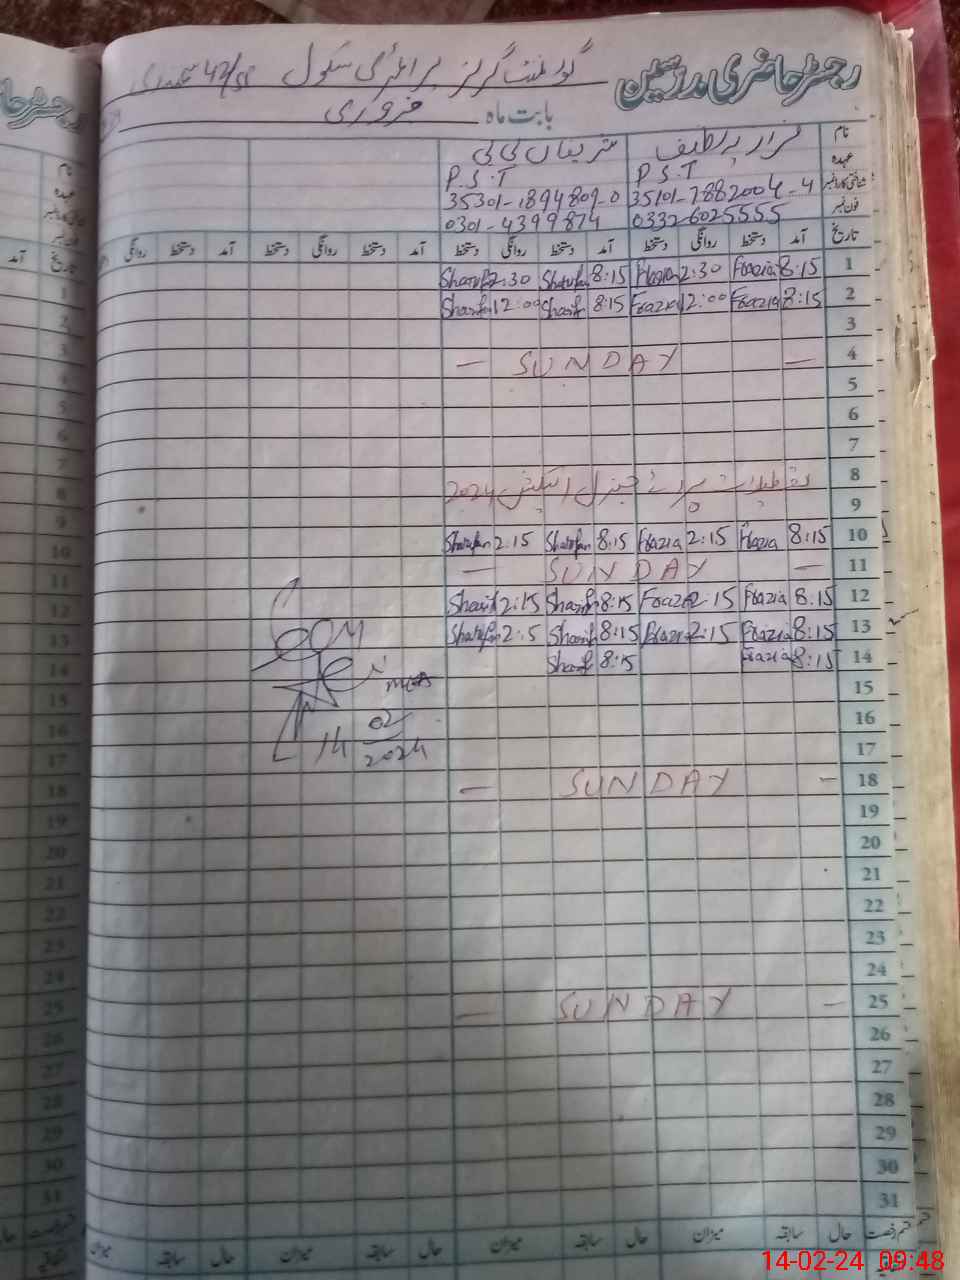 رجسٹر حاضری مدرسین گورنمنٹ گرلز پرائمری سکول 42/SP
بابت ماہ فروری
نام
عہدہ P.S.T P.S.T
شناختی کارڈ نمبر 35101-7882004-4 35301-1894809-0
فون نمبر 03326025555 0301-4399874
تاریخ آمد دستخط روانگی دستخط آمد دستخط روانگی دستخط آمد دستخط روانگی دستخط آمد دستخط روانگی
1 8:15 Frazia 2:30 Frazia 8:15 Sharifan 2:30 Sharifan
2 8:15 Frazia 12:00 Frazia 8:15 Sharif 12:00 Sharifan
3
4 — SUNDAY —
5
6
7
8 تعطیلات برائے جنرل الیکشن 2024
9
10 8:15 Frazia 2:15 Frazia 8:15 Sharifan 2:15 Sharifan
11 — SUNDAY —
12 8:15 Frazia 2:15 Frazia 8:15 Sharifan 2:15 Sharif
13 8:15 Frazia 2:15 Frazia 8:15 Sharif 2:15 Sharifan
14 8:15 Frazia 8:15 Sharif
15
16
17
18 — SUNDAY —
19
20
21
22
23
24
25 — SUNDAY —
26
27
28
29
30
31
قسم رخصت حال سابقہ میزان حال سابقہ میزان حال سابقہ میزان حال سابقہ میزان
14 02/2024
14-02-24 09:48